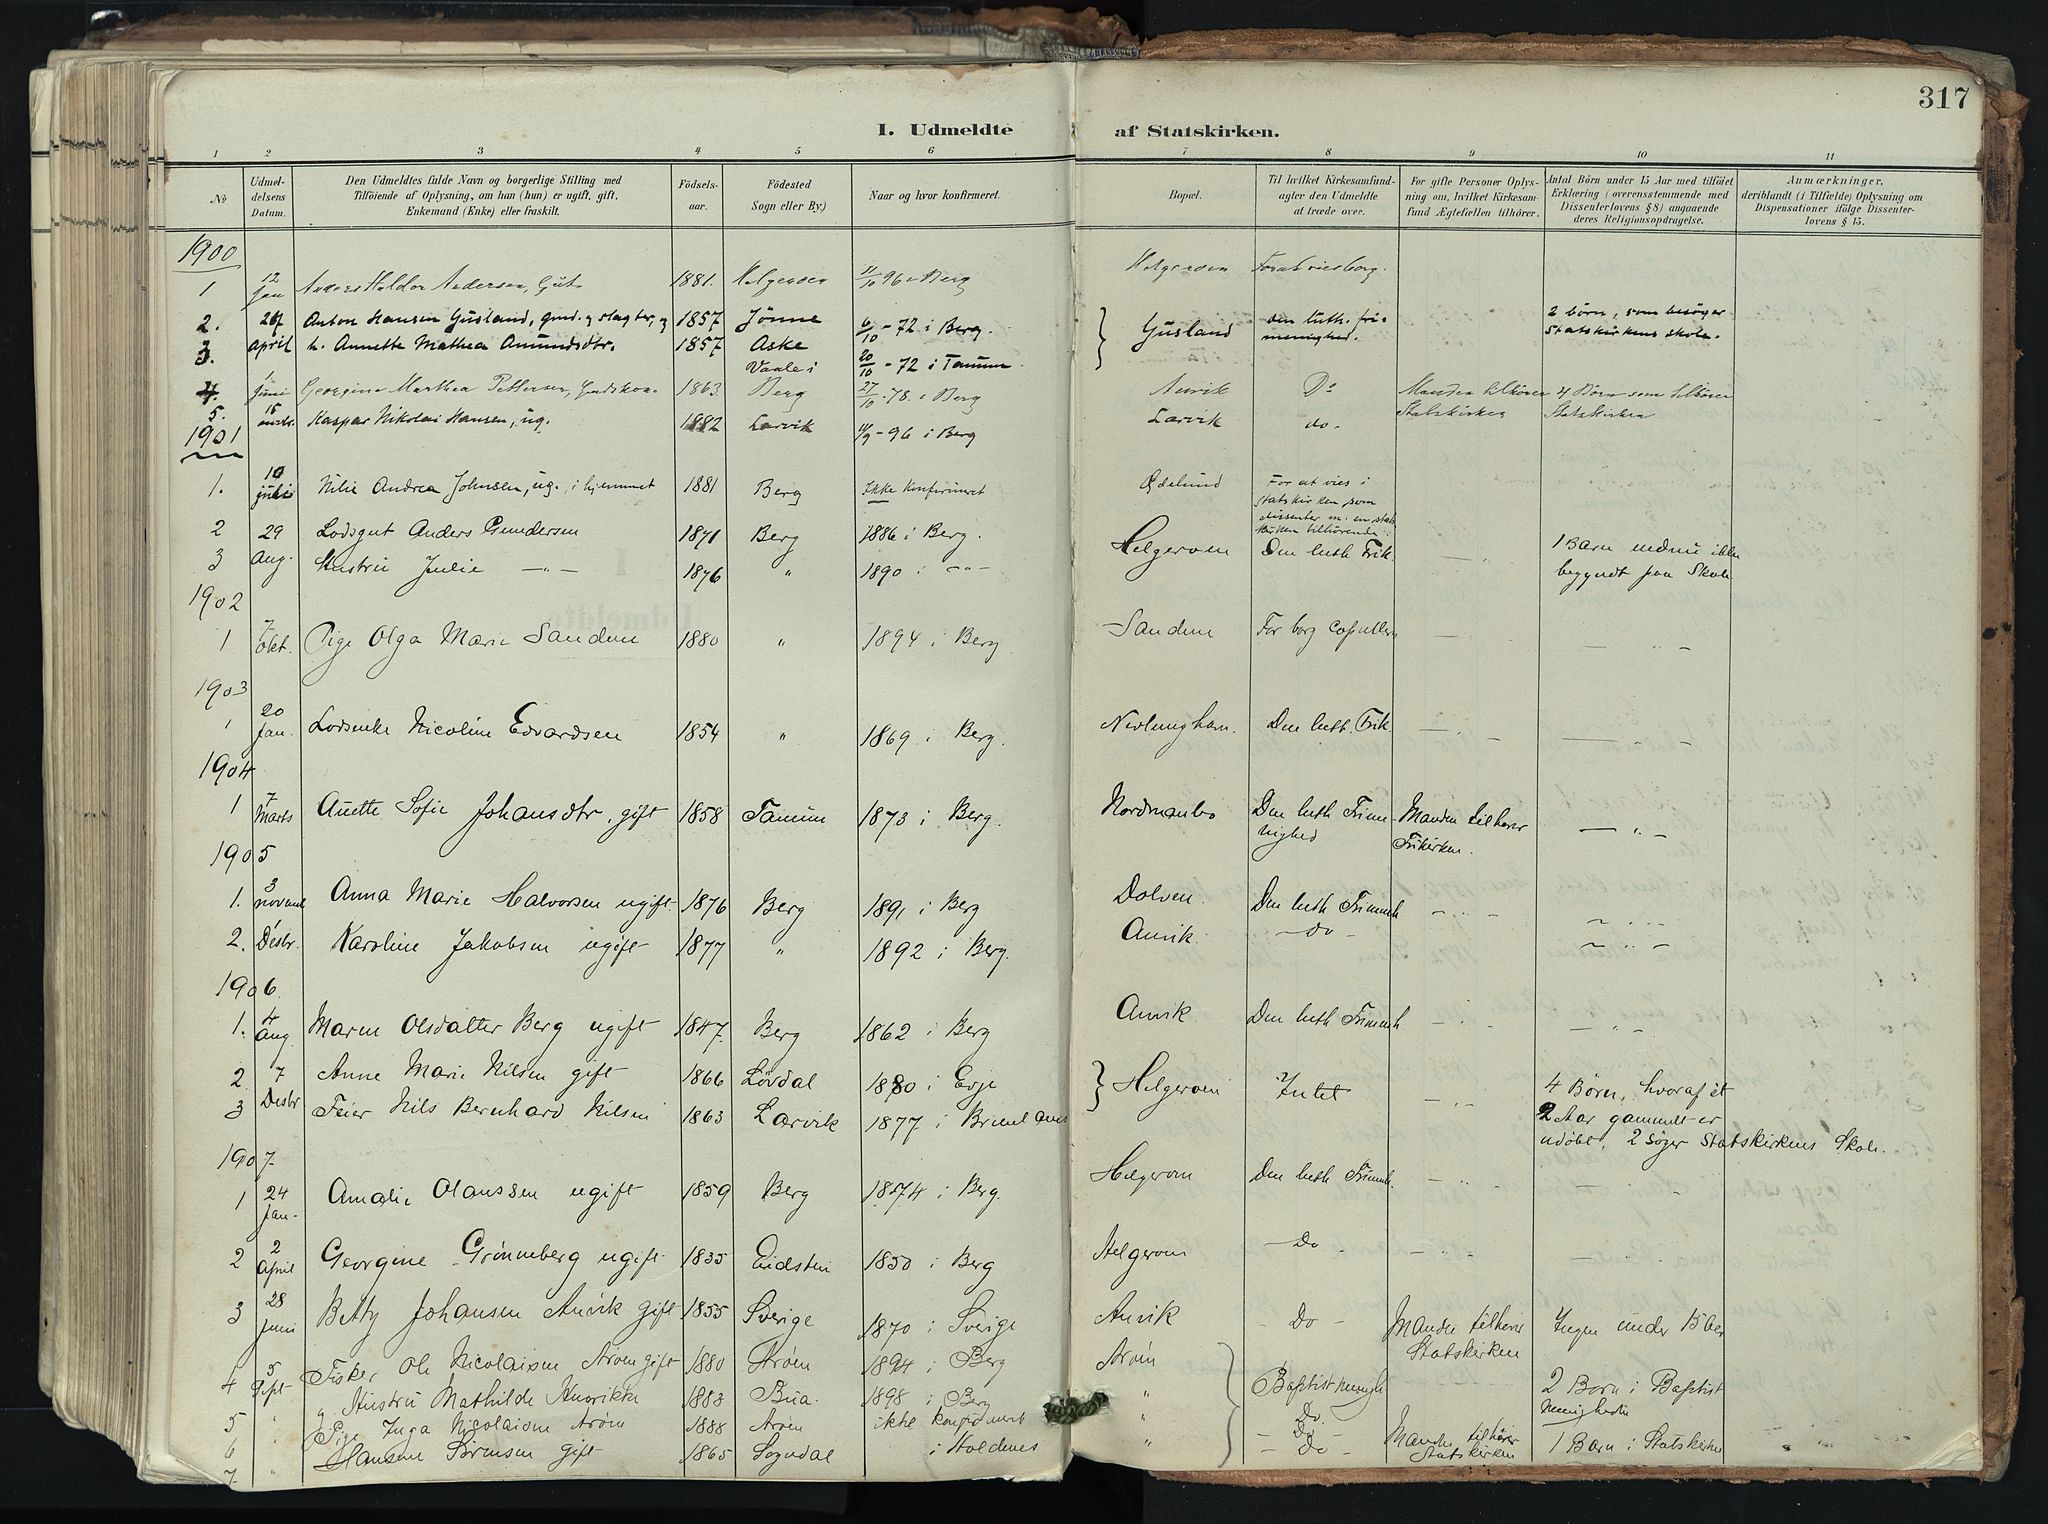 317
I. Udmeldte af Statskirken.
1 2 3 4 5 6 7 8 9 10 11
No
Udmel-
delsens
Datum.
Den Udmeldtes fulde Navn og borgerlige Stilling med
Tilföiende af Oplysning, om han (hun) er ugift, gift,
Enkemand (Enke) eller fraskilt.
Födsels-
aar.
Födested
Sogn eller By.)
Naar og hvor konfirmeret.
Bopæl.
Til hvilket Kirkesamfund-
agter den Udmeldte
at træde over.
For gifte Personer Oplys-
ning om, hvilket Kirkesam-
fund Ægtefællen tilhörer.
Antal Börn under 15 Aar med tilföiet
Erklæring (overensstemmende med
Dissenterlovens § 8) angaaende
deres Religionsopdragelse.
Anmærkninger,
deriblandt (i Tilfælde) Oplysning om
Dispensationer ifölge Dissenter-
lovens § 15.
1900
1 12 Jan Anders Haldor Andersen, Gut 1881. Helgeroen 11/10 96 i Berg Helgeroen
2. 26/ Anton Hansen Gusland, gmd. og slagter, og 1857 Jönne 6/10 - 72 i Berg. Gusland den luth. fri- 2 börn, som besöger
menighed. statskirkens skole.
3. april h. Annette Mathea Amundsdtr. 1857 Aske 20/10 - 72 i Tanum
Vaale i
4. 1 Juni Georgine Marthea Pettersen, 1863 Berg 27/10 - 78 i Berg Anvik Do Manden tilhörer 4 Börn som tilhörer
Statskirken Statskirken
5. 15 Kaspar Nikolai Hansen, ug. 1882 Larvik 11/9 - 96 i Berg Larvik do.
1901
1. 10 juli Nilie Andrea Johnsen, ug., i hjemmet 1881 Berg Ikke konfirmeret Ødelund For at vies i
statskirken, som
dissenter m. en stats-
kirken tilhörende.
2 29 Lodsgut Anders Gundersen 1871 Berg 1886 i Berg. Helgeroen Den luth Frik. 1 Barn endnu ikke
begyndt paa Skole
3 Aug. Hustru Julie —"— 1876 " 1890 i —"—
1902
1 7 Okt. Pige Olga Marie Sandene 1880 " 1894 i Berg Sandene For borg Copulation — " —
1903
1 20 Jan. Lodsenke Nicoline Edvardsen 1854 " 1869 i Berg. Nevlunghavn. Den luth. Frik. — " —
1904
1 7 Marts Anette Sofie Johansdtr, gift 1858 Tanum 1873 i Berg. Nordmanbo Den luth Frime- Manden tilhører — " —
nighed Frikirken.
1905
1. 3 novemb Anna Marie Halvorsen ugift. 1876 Berg 1891 i Berg Dolven. Den luth Frimenh — " —
2. 1 Desbr. Karoline Jakobsen ugift 1877 " 1892 i Berg. Anvik. — do —
1906
1. 4 Aug. Maren Olsdatter Berg ugift 1847. Berg 1862 i Berg Anvik Den luth Frimenh — " —
2 7 Anne Marie Nilsen gift 1866 Lövdal 1880 i Evje Helgeroen Intet 4 Börn, hvoraf ét
2 Aar gammelt er
udöbt, 2 söger Statskirkens Skole.
3 Desbr Feier Nils Bernhard Nilsen 1863 Larvik 1877 i
1907.
1 24 Jan. Amalie Olaussen ugift 1859 Berg 1874 i Berg. Helgeroen Den luth Frimenh.
2 2 April Georgine Grønneberg ugift 1835 Eidsten 1850 i Berg Helgeroen — Do
3 28 Juni Betty Johansen Anvik gift 1855 Sverige 1870 i Sverige Anvik — Do — Manden tilhører Ingen under 15 aar
Statskirken
4 5 Sept Fisker Ole Nicolaisen Arøen gift 1880 Arøen 1894 i Berg Arøen Baptist menigh 2 Barn i Baptist
Menigheden
5 " " Hustru Mathilde Henrikke 1883 Bua. 1898 i Berg " Do.
6 " Pige Inga Nicolaisen Arøen 1888 Arøen ikke konfirmeret " — Do
7. " Hansine Sørensen gift 1865 Sogndal i Holdenes " — Do — Manden tilhører 1 Barn i Statskirken
Statskirken